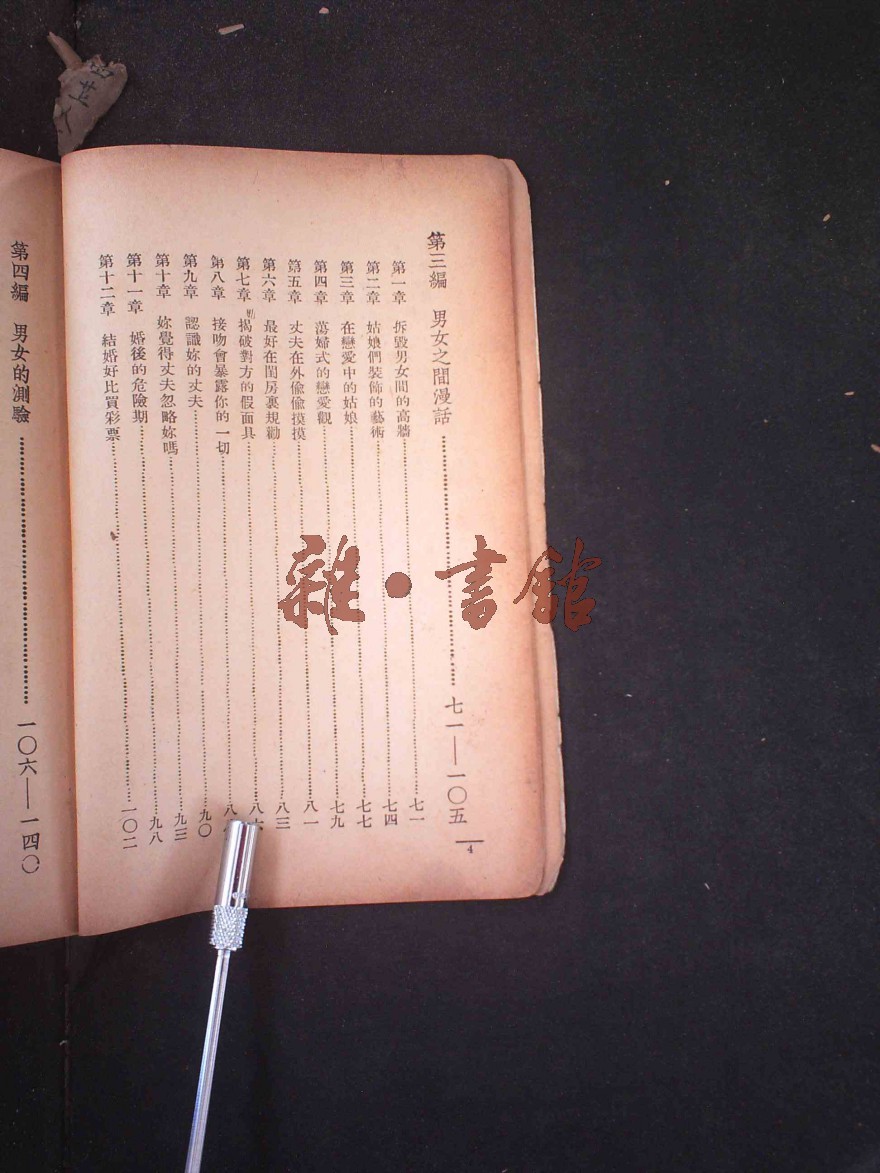 第三編　男女之間漫話……七一——一〇五
第一章　拆毀男女間的高牆……七一
第二章　姑娘們裝飾的藝術……七四
第三章　在戀愛中的姑娘……七七
第四章　蕩婦式的戀愛觀……七九
第五章　丈夫在外偷偷摸摸……八一
第六章　最好在閨房裏規勸……八三
第七章　揭破對方的假面具……八六
第八章　接吻會暴露你的一切……八
第九章　認識妳的丈夫……九〇
第十章　妳覺得丈夫忽略妳嗎……九三
第十一章　婚後的危險期……九八
第十二章　結婚好比買彩票……一〇二
4
第四編　男女的測驗……一〇六——一四〇
雜・書館